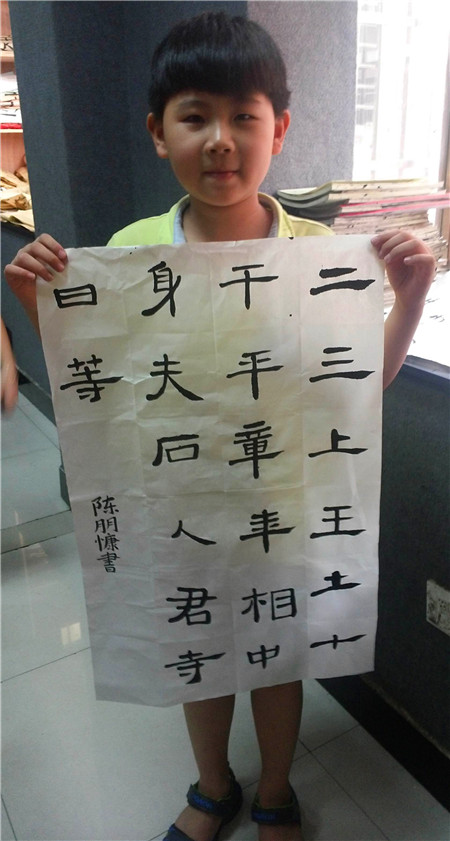 二三上王土十
干平章年相中
身夫石人君寺
曰等
陈朋慷書